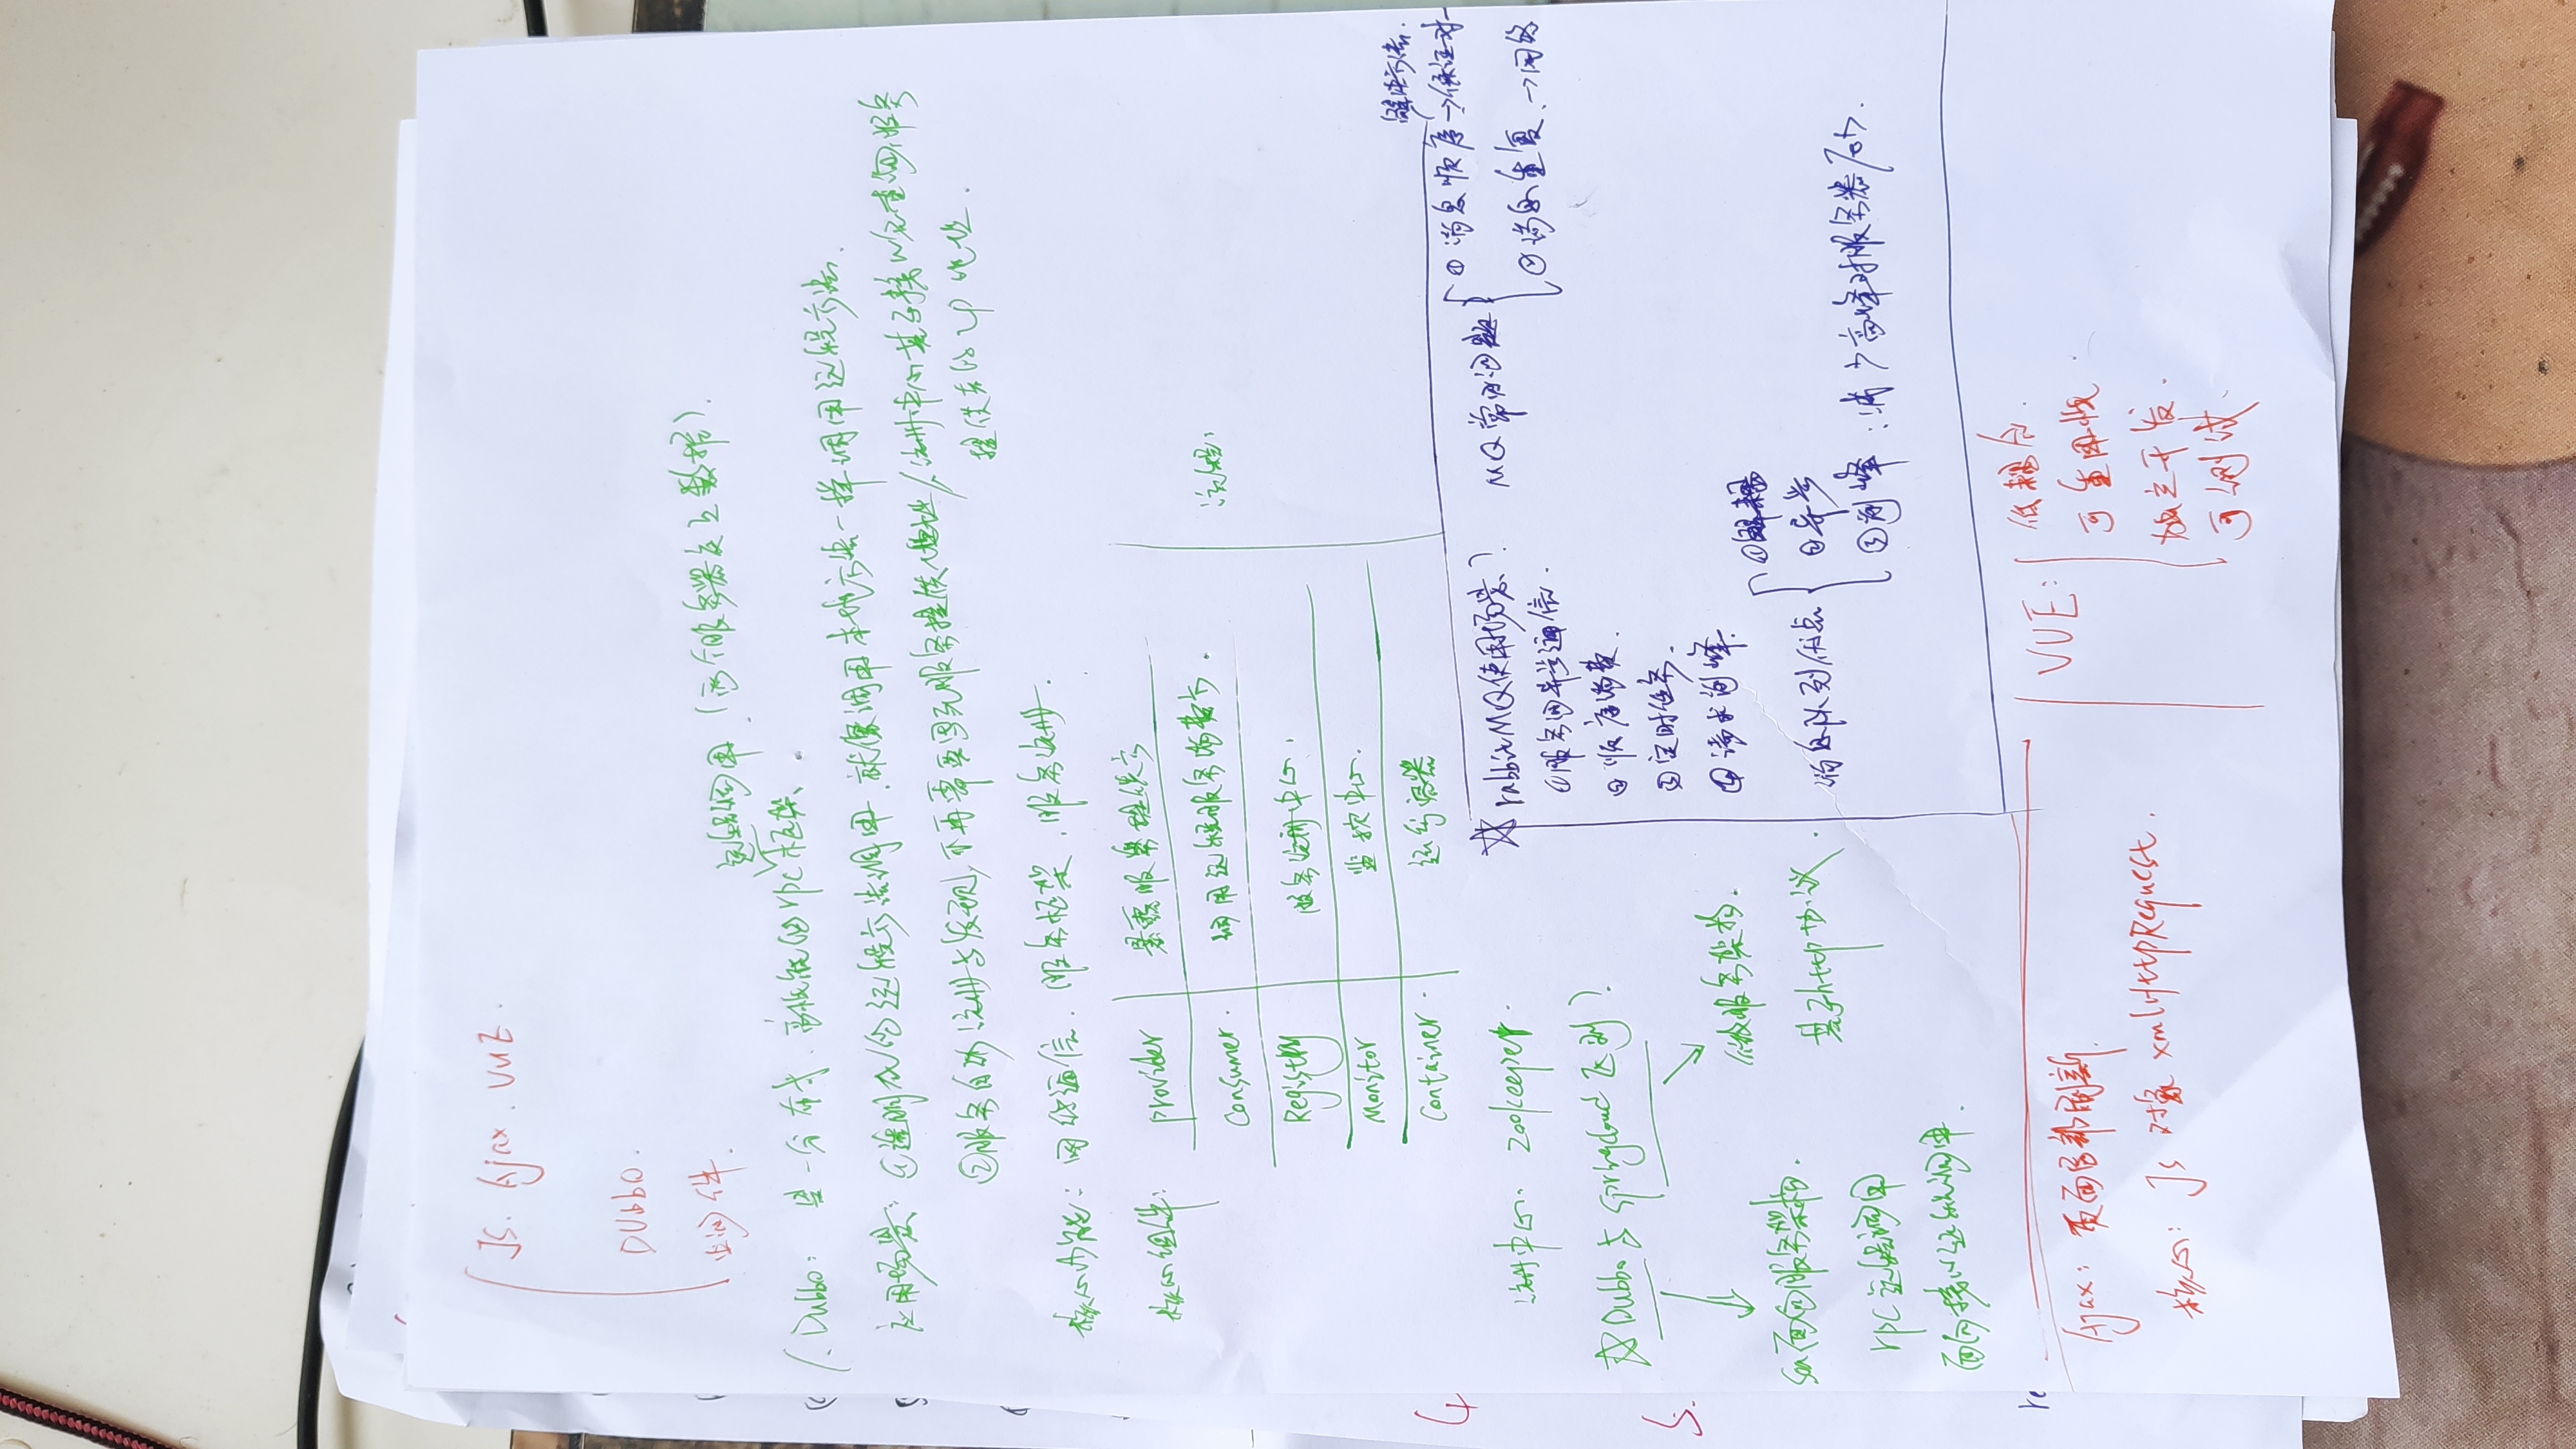 JS. Ajax. VUE.
Dubbo.
中间件.
远程调用. (两个服务器交互数据).
1. Dubbo: 是一分布式. 高性能的rpc框架、
应用场景: ①透明化的远程方法调用. 就像调用本地方法一样调用远程方法.
②服务自动注册与发现, 不再需要写死服务提供地址//注册中心基于接口名查询服务
提供者的IP地址.
核心功能: 网络通信. 服务框架. 服务注册.
核心组件:
流程:
provider 暴露服务提供方
Consumer. 调用远程服务消费方.
Registry 服务注册中心.
Monitor 监控中心.
Container. 运行容器
注册中心. zookeeper.
Dubbo与springcloud区别).
soa面向服务架构.
rpc远程调用
面向接口
微服务架构.
基于http协议.
rabbitMQ使用场景?
①服务间异步通信.
②顺序消费.
③定时任务.
④请求削峰.
MQ常见问题
解决方法.
①消息顺序→保证
②消息重复.→
消息队列优点
①解耦
②异步
③削峰: 减少高峰对服务器压力.
Ajax: 页面局部刷新.
核心: JS 对象 xmlHttpRequest.
VUE: 低耦合.
可重用性.
独立开发.
可测试.